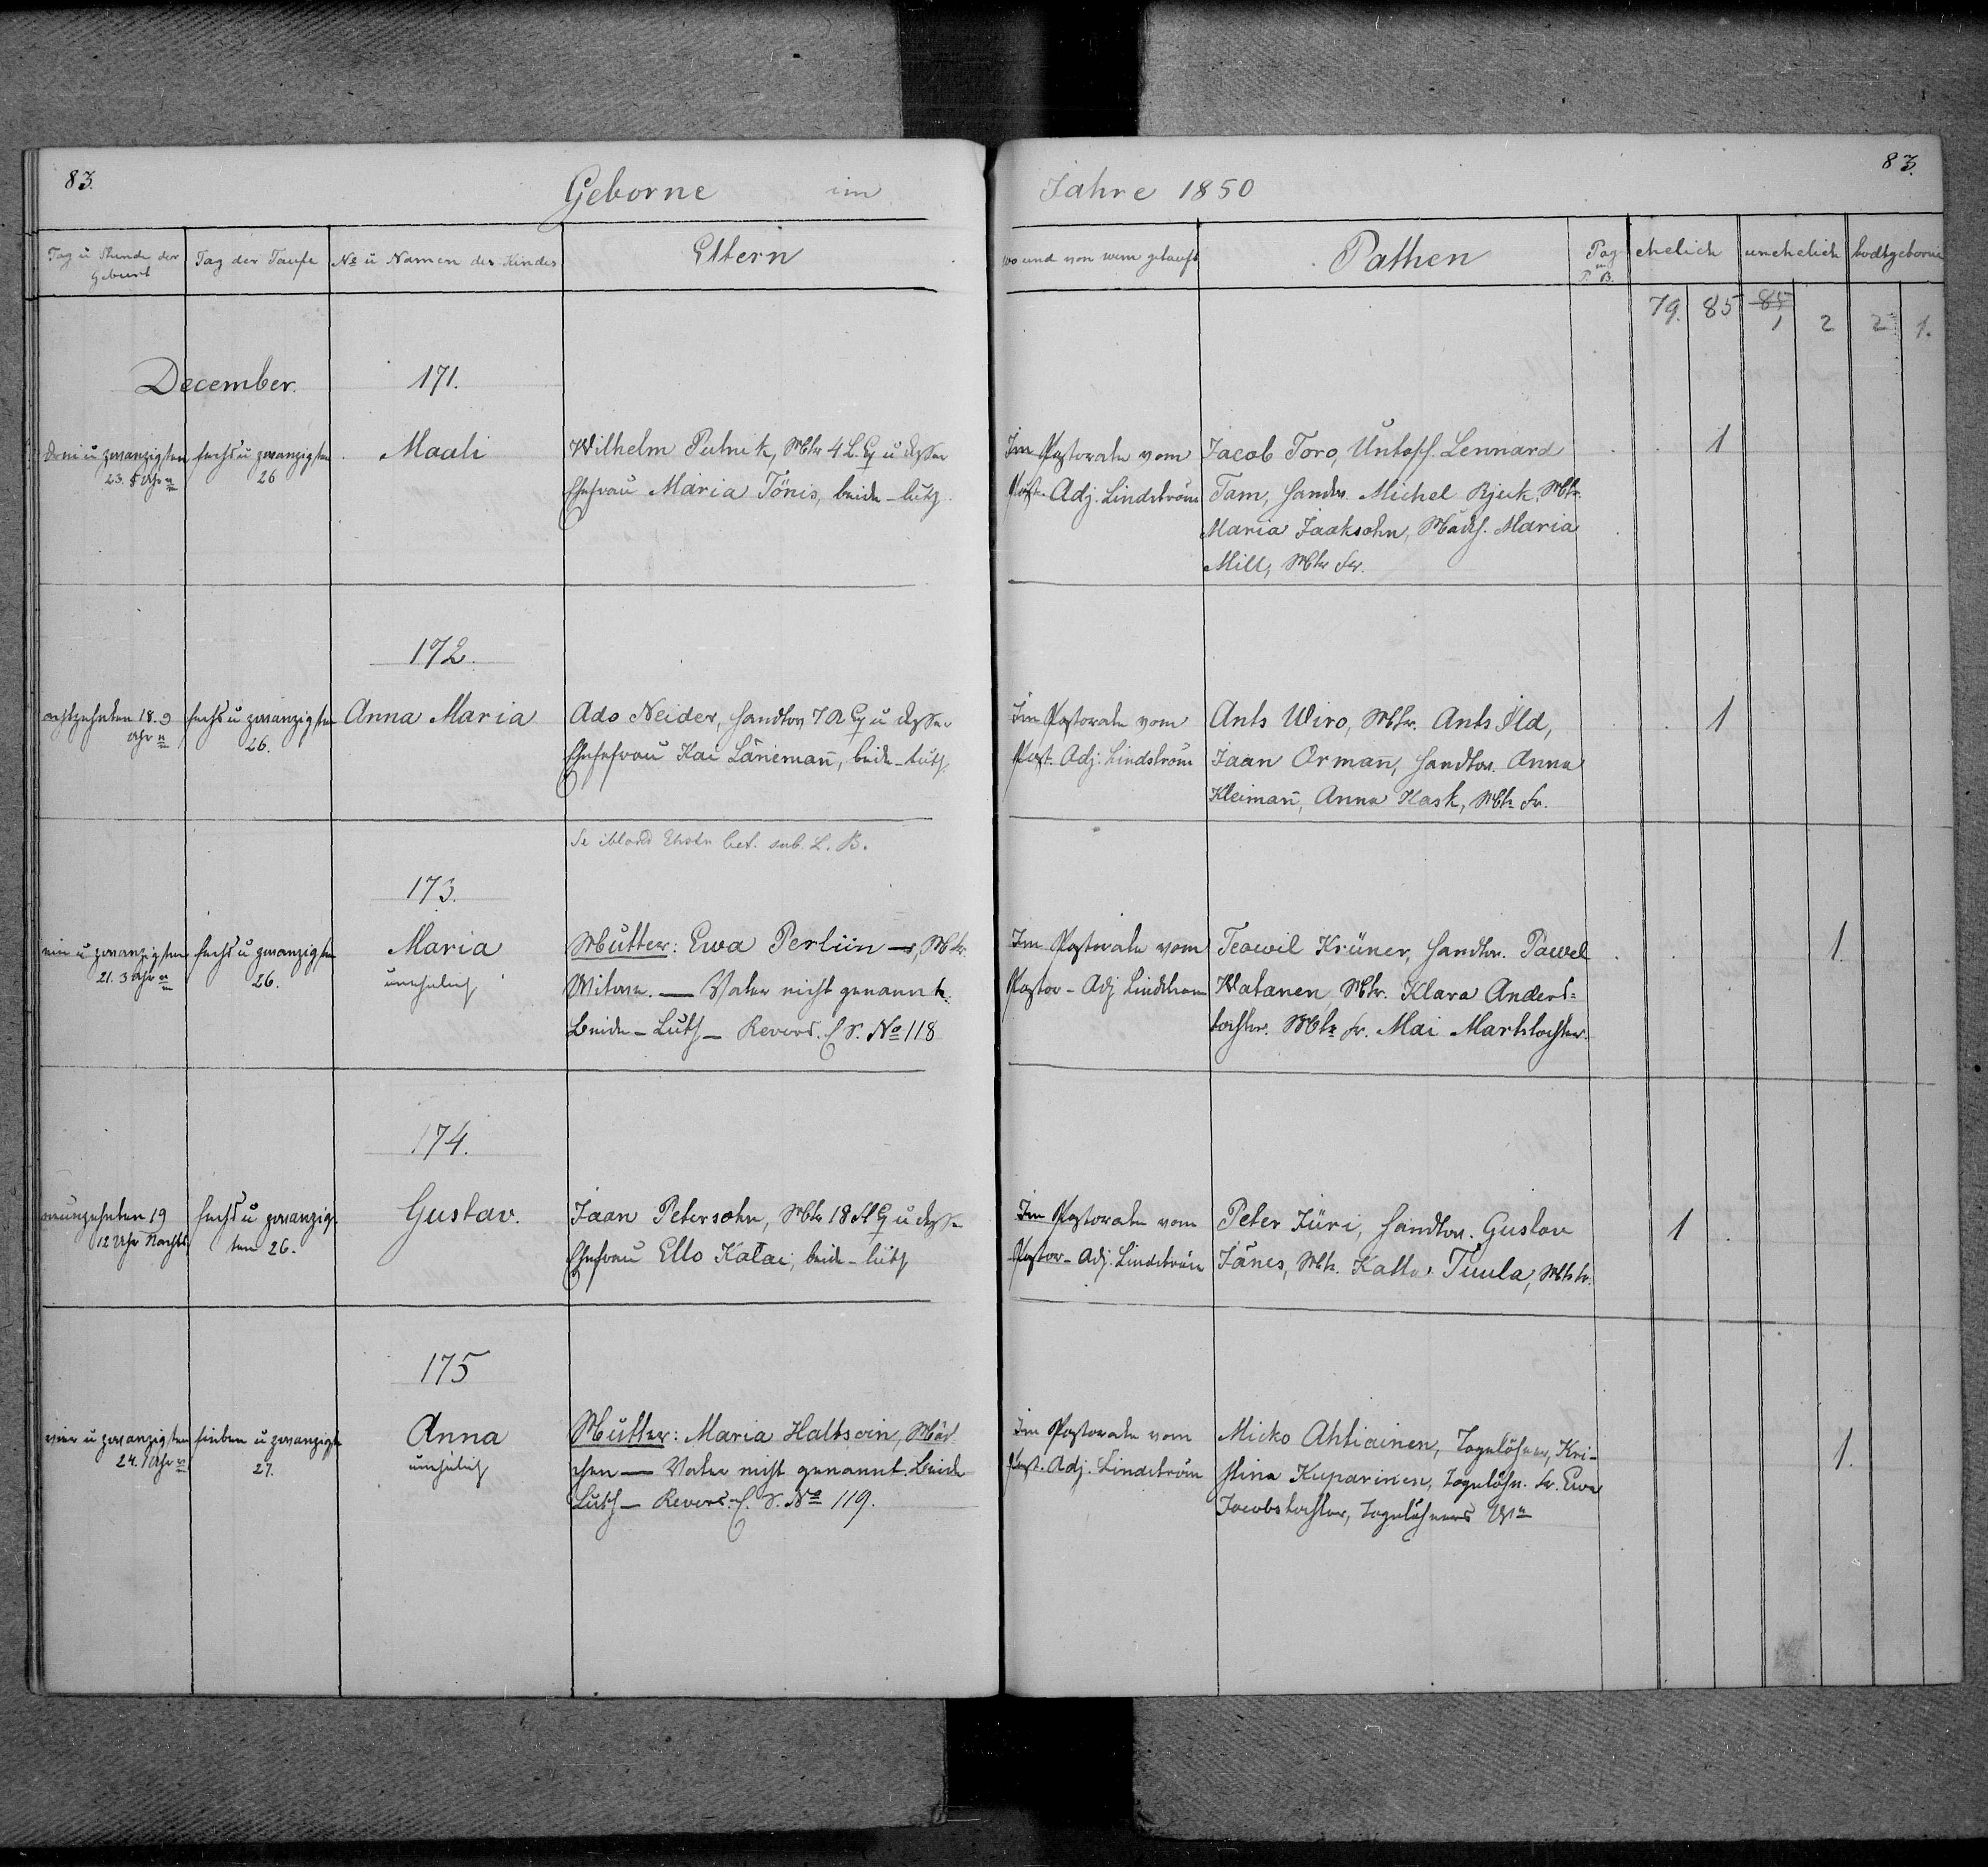 83.
Geborne im
Jahre 1850
83.
Tag u Stunde der Geburt
Tag der Taufe
No u Namen des Kindes
Eltern
wo und von wem getauft
Pathen
Pag
P. B.
ehelich
unehelich
todtgeborne
79. 85 85 1 2 2 1.
December.
171.
drei u zwanzigsten
23. 5 Uhr
sechs u zwanzigsten
26
Maali
Wilhelm Putnik, Mtr 4 L. Eq u dessen
Ehefrau Maria Tönis, beide - luth.
Im Pastorate vom
Past. Adj. Lindström
Jacob Toro, Untoff. Lennard
Tam, Handw. Michel Rjeck, Mtr.
Maria Jaaksohn, Mädch. Maria
Mill, Mtr Fr.
1
172.
achtzehnten 18. 9
Uhr
sechs u zwanzigsten
26.
Anna Maria
Ado Neider, Handw. 7 A Eq u dessen
Ehefrau Kai Länemañ, beide - luth.
Im Pastorate vom
Past. Adj. Lindström
Ants Wiro, Mtr. Ants Ild,
Jaan Orman, Handw. Anna
Kleimañ, Anna Kask, Mtr Fr.
1
Se ibland Ehstn bet. sub. L. B.
173.
ein u zwanzigsten
21. 3 Uhr
sechs u zwanzigsten
26.
Maria
unehelich
Mutter: Ewa Perliin, Mtr.
Witwe. — Vater nicht genannt.
Beide - Luth - Revers. No 118
Im Pastorate vom
Pastor - Adj Lindström
Teowil Krüner, Handw. Pawel
Watanen, Mtr. Klara Anders=
tochter. Mtr Fr. Mai Martstochter.
1.
174.
neunzehnten 19
12 Uhr Nachts
sechs u zwanzigs-
ten 26.
Gustav.
Jaan Petersohn, Mtr 18 A Eq u dessen
Ehefrau Ello Katai, beide - luth
Im Pastorate vom
Pastor - Adj. Lindström
Peter Jüri, Handw. Gustav
Jänes, Mtr. Katta Tuula, Mtr Fr.
1
175
vier u zwanzigsten
24. 1 Uhr
sieben u zwanzigsten
27.
Anna
unehelich
Mutter: Maria Haltsoin, Mäd-
chen — Vater nicht genannt. Beide
Luth - Revers. No 119.
Im Pastorate vom
Past. Adj. Lindström
Micko Ahtiainen, Tagelöhner, Kri-
stina Kuparinen, Tagelöhn. Fr. Ewa
Jacobstochter, Tagelöhners
1.